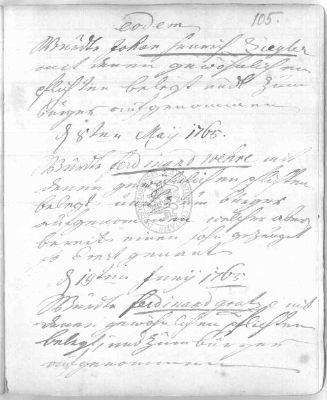 105.
eodem
Würdte Johan Henrich Ziegler
mit denen gewöhnlichen
pflichten belegt undt Zum
bürger aufgenommen
d 8ten Maij 1765.
Würdte ferdinand wehre mit
denen gewöhnlichen pflichten
belegt und zum bürger
aufgenommen welcher aber
bereits einen sohn gezeuget
genant
d 19ten Junij 1765
Würdte ferdinand gratz mit
denen gewöhnlichen pflichten
belegt, und zum bürger
aufgenommen